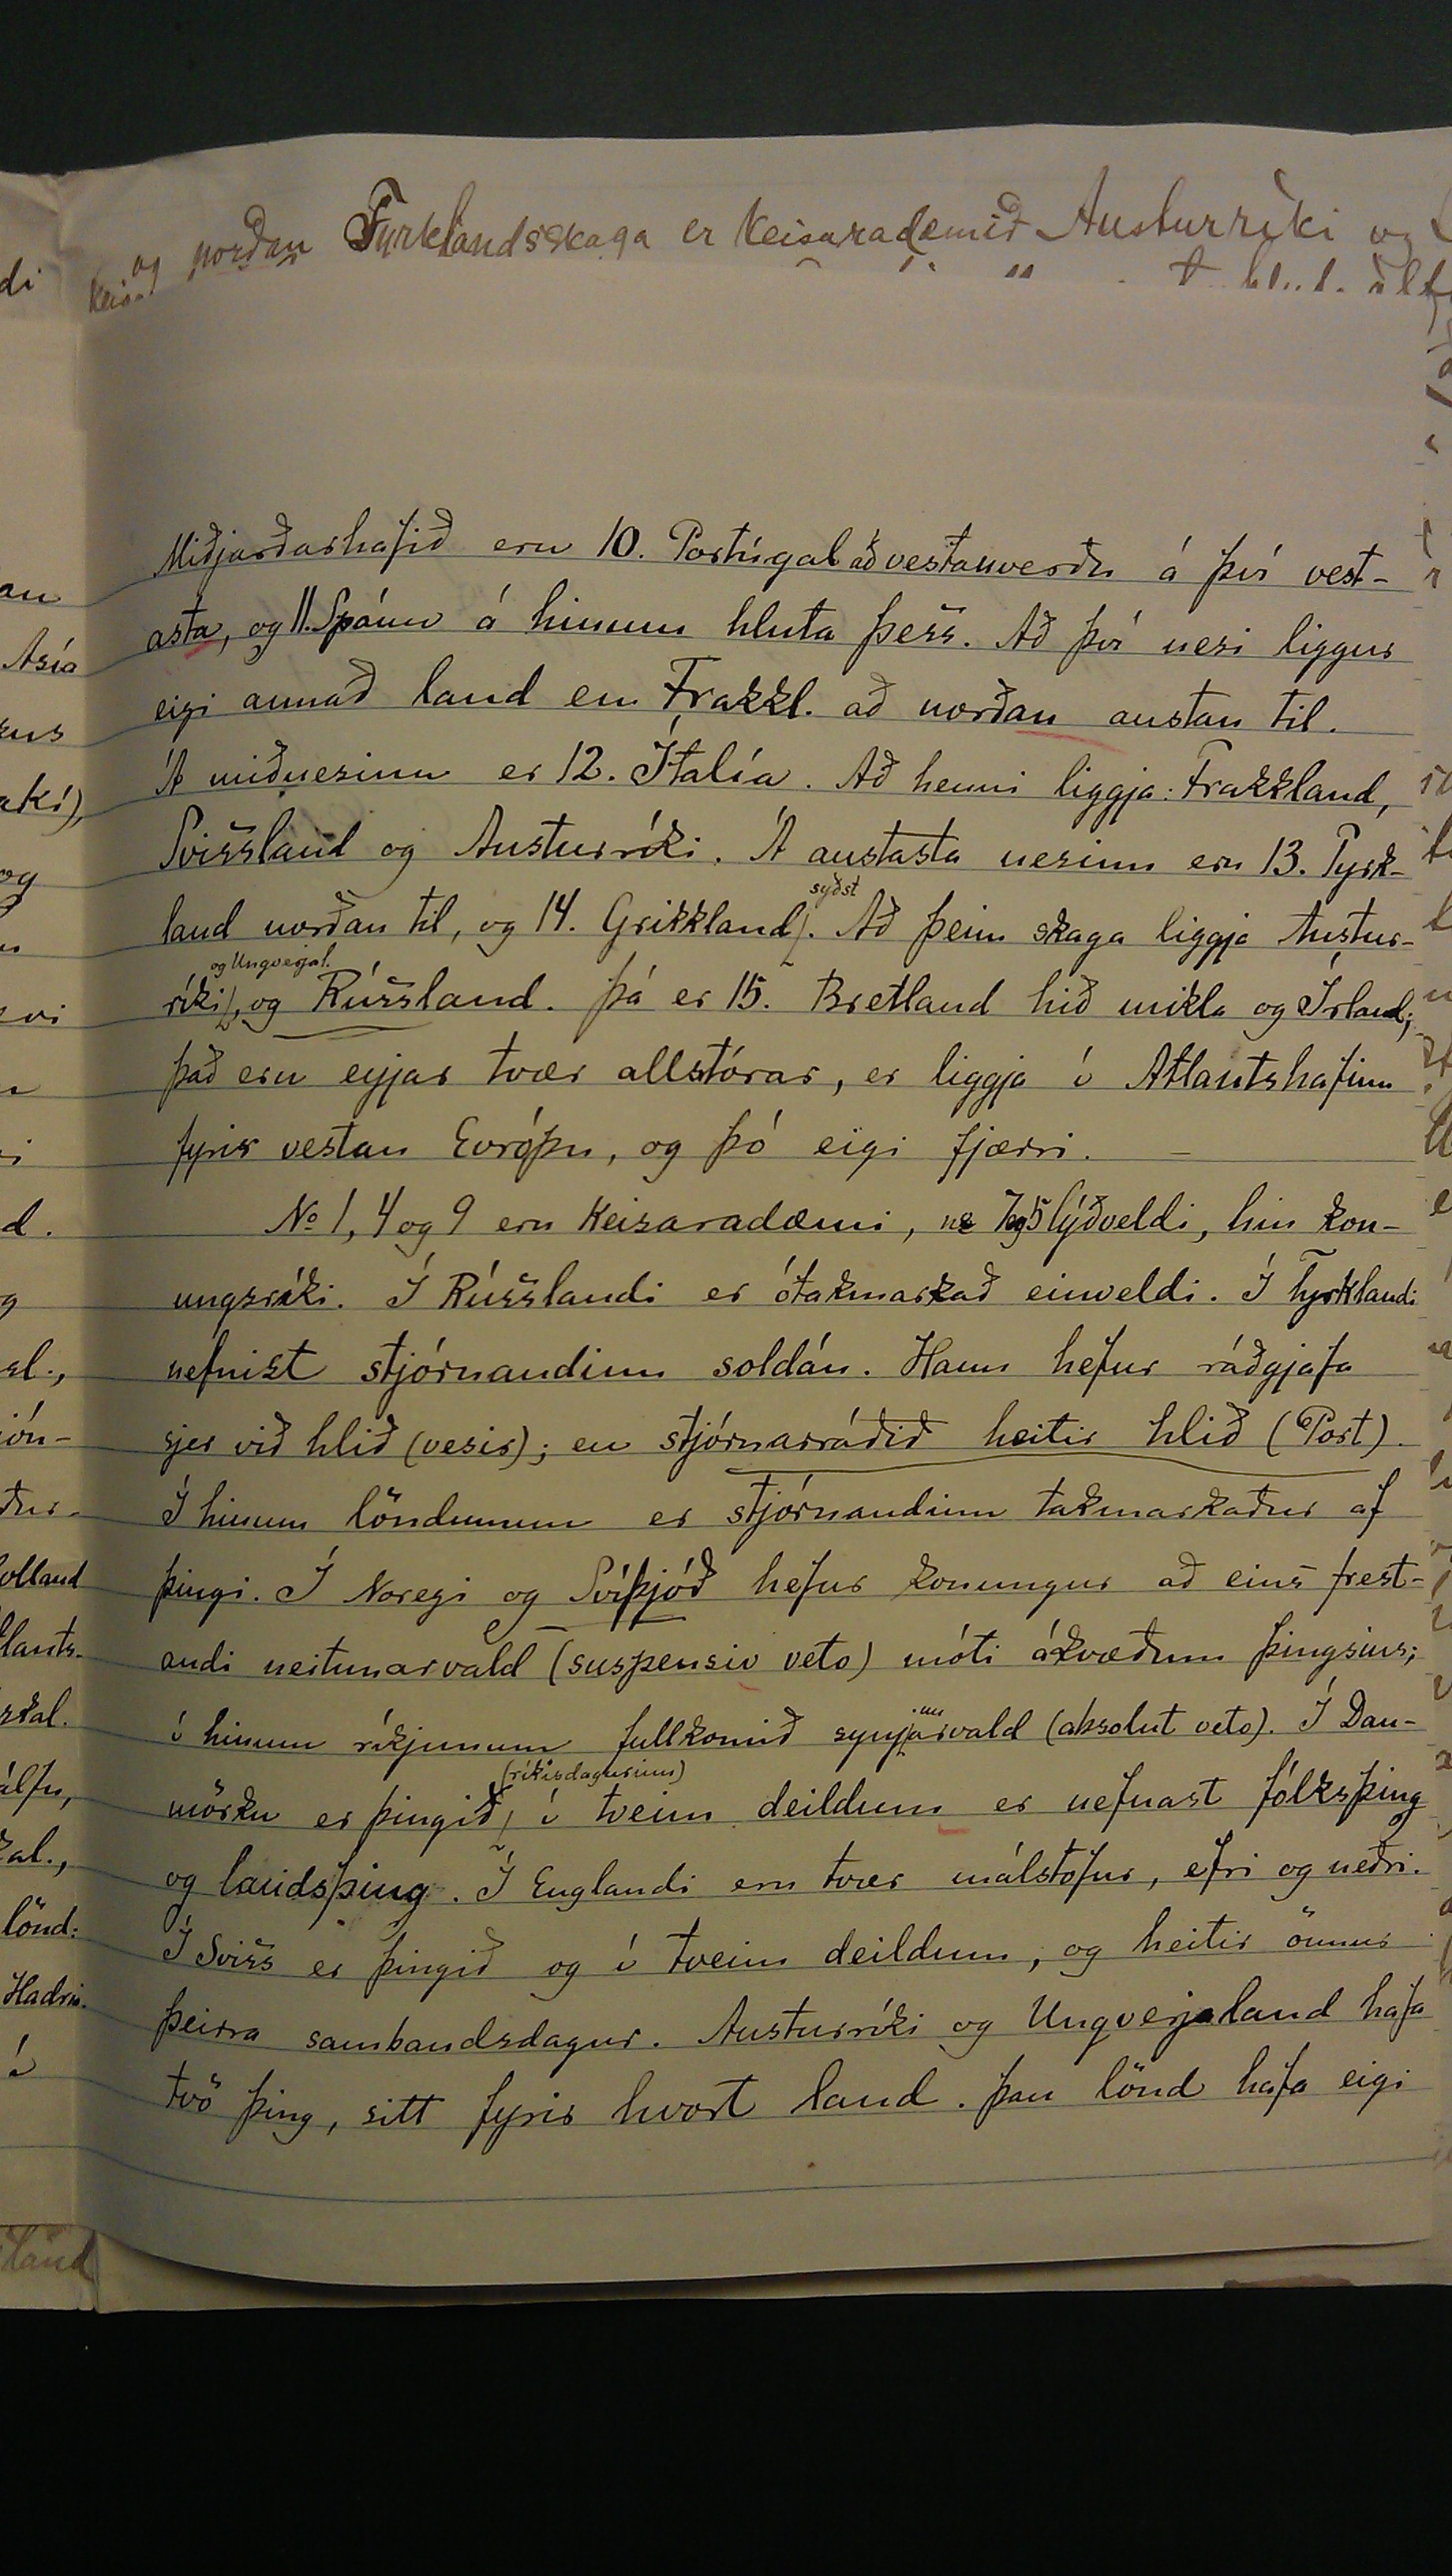 og norðan Tyrklandsskaga er keisaradæmið Austurríki og
Miðjarðarhafið eru 10. Portúgal að vestanverðu á því vest-
asta, og 11. Spánn á hinum hluta þess. Að því nesi liggur
eigi annað land en Frakkl. að norðan austan til.
Á miðnesinu er 12. Ítalía. Að henni liggja: Frakkland,
Svissland og Austurríki. Á austasta nesinu eru 13. Tyrk-
land norðan til, og 14. Grikkland syðst. Að þeim skaga liggja Austur-
ríki og Ungverjal., og Rússland. Þá er 15. Bretland hið mikla og Írland;
það eru eyjar tvær allstórar, er liggja í Atlantshafinu
fyrir vestan Evrópu, og þó eigi fjærri. –
No 1, 4 og 9 eru keisaradæmi, 7 og 5 lýðveldi, hin kon-
ungsríki. Í Rússlandi er ótakmarkað einveldi. Í Tyrklandi
nefnist stjórnandinn soldán. Hann hefur ráðgjafa
sjer við hlið (vesir); en stjórnarráðið heitir hlið (Port).
Í hinum löndunum er stjórnandinn takmarkaður af
þingi. Í Noregi og Svíþjóð hefur konungur að eins frest-
andi neitunarvald (suspensiv veto) móti ákvæðum þingsins;
í hinum ríkjunum fullkomið synjunarvald (absolut veto). Í Dan-
mörku er þingið (ríkisdagurinn) í tveim deildum er nefnast fólksþing
og landsþing. Í Englandi eru tvær málstofur, efri og neðri.
Í Sviss er þingið og í tveim deildum, og heitir önnur
þeirra sambandsdagur. Austurríki og Ungverjaland hafa
tvö þing, sitt fyrir hvort land. Þau lönd hafa eigi